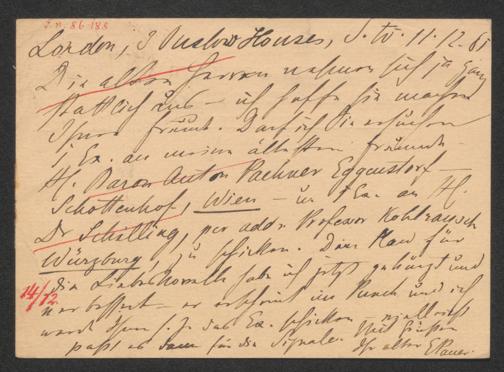 J.n. 86.188
London, 3 Onslow Houses, S.W. 11.12.81
Die alten Herren nehmen sich ja ganz
stattlich aus – ich hoffe sie machen
Ihnen Freude. Darf ich Sie ersuchen
1 Ex. an meinen ältesten Freund
H. Baron Anton Pachner Eggenstorf –
Schottenhof, Wien – u 1 Ex. an H.
Dr Schilling, per addr Professor Kohlrausch
Würzburg zu schicken. Den Plan für
die habe ich jetzt gekürzt und
14/12
verbessert – er erscheint im Punch und ich
werde Ihnen s. Z. das Ex. schicken – vielleicht
passt es dann für die Signale. Mit Grüssen
Ihr alter EPauer.